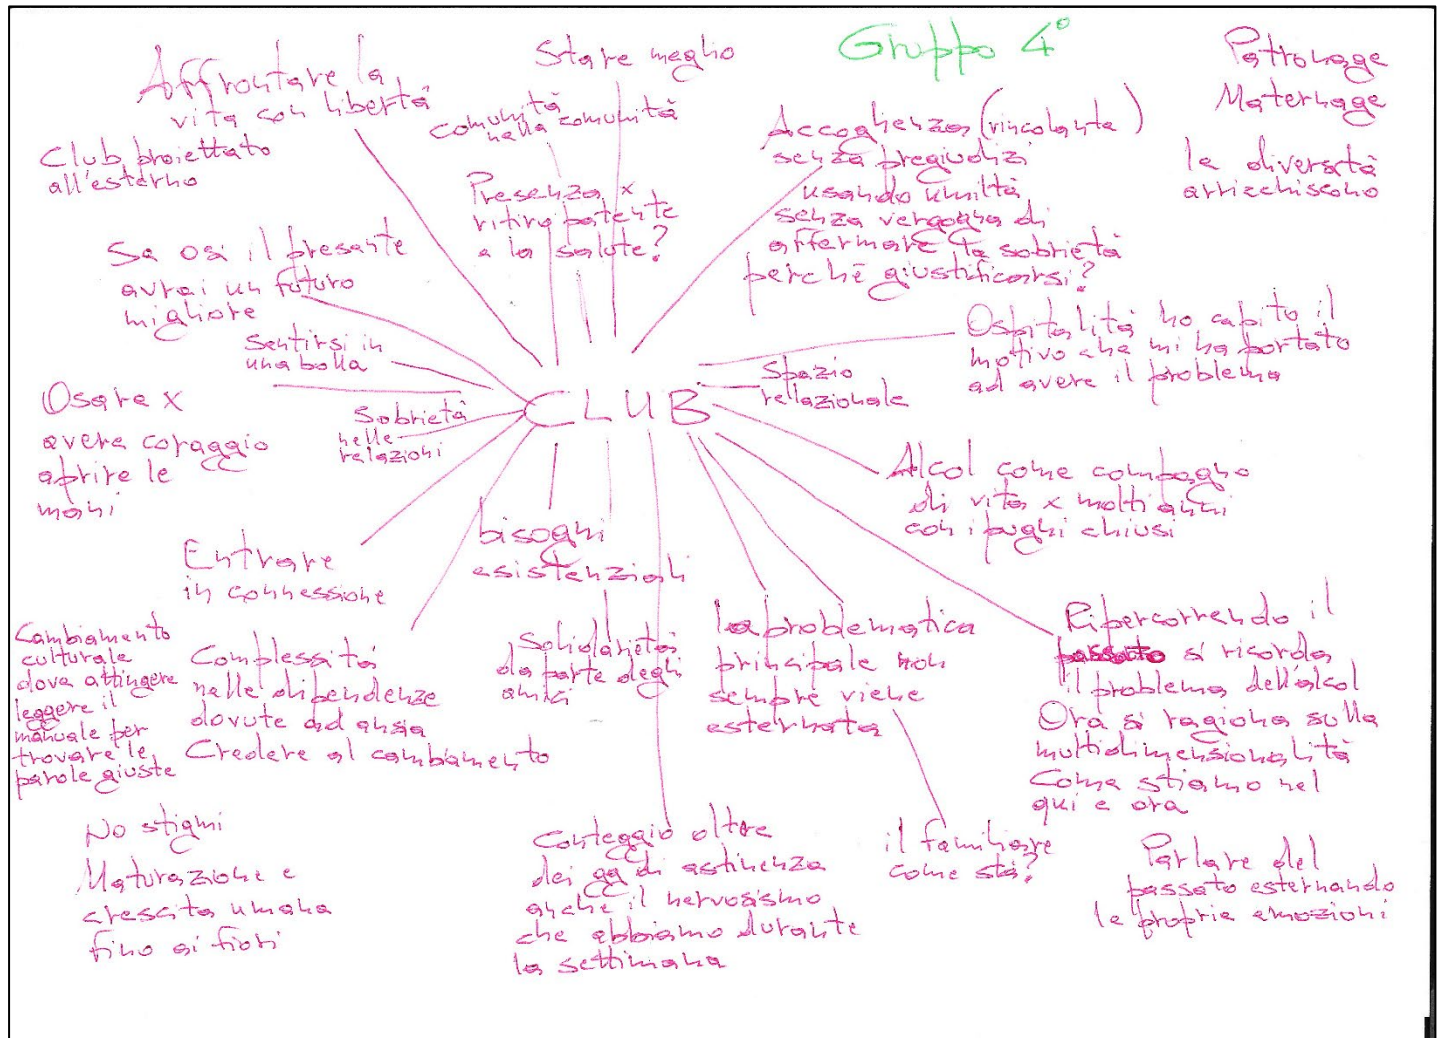 Gruppo 4°
Affrontare la
vita con libertà
Stare meglio
comunità
nella comunità
Patronage
Maternage
le diversità
arricchiscono
Club proiettato
all'esterno
Presenza x
ritiro patente
e la salute?
Accoglienza (vincolante)
senza pregiudizi
usando umiltà
senza vergogna di
affermare la sobrietà
perchè giustificarsi?
Se osi il presente
avrai un futuro
migliore
Sentirsi in
una bolla
Ospitalità ho capito il
motivo che mi ha portato
ad avere il problema
Spazio
rellazionale
Osare x
avere coraggio
aprire le
mani
Sobrietà
nelle
relazioni
CLUB
Alcol come compagno
di vita x molti anni
con i pugni chiusi
Entrare
in connessione
bisogni
esistenziali
Cambiamento
culturale
dove attingere
leggere il
manuale per
trovare le
parole giuste
Complessità
nelle dipendenze
dovute ad ansia
Credere al cambiamento
Solidarietà
da parte degli
amici
la problematica
principale non
sempre viene
esternata
Ripercorrendo il
passato si ricorda
il problema dell'alcol
Ora si ragiona sulla
multidimensionalità
Come stiamo nel
qui e ora
No stigmi
Maturazione e
crescita umana
fino ai fiori
Conteggio oltre
dei gg di astinenza
anche il nervosismo
che abbiamo durante
la settimana
il familiare
come sta?
Parlare del
passato esternando
le proprie emozioni